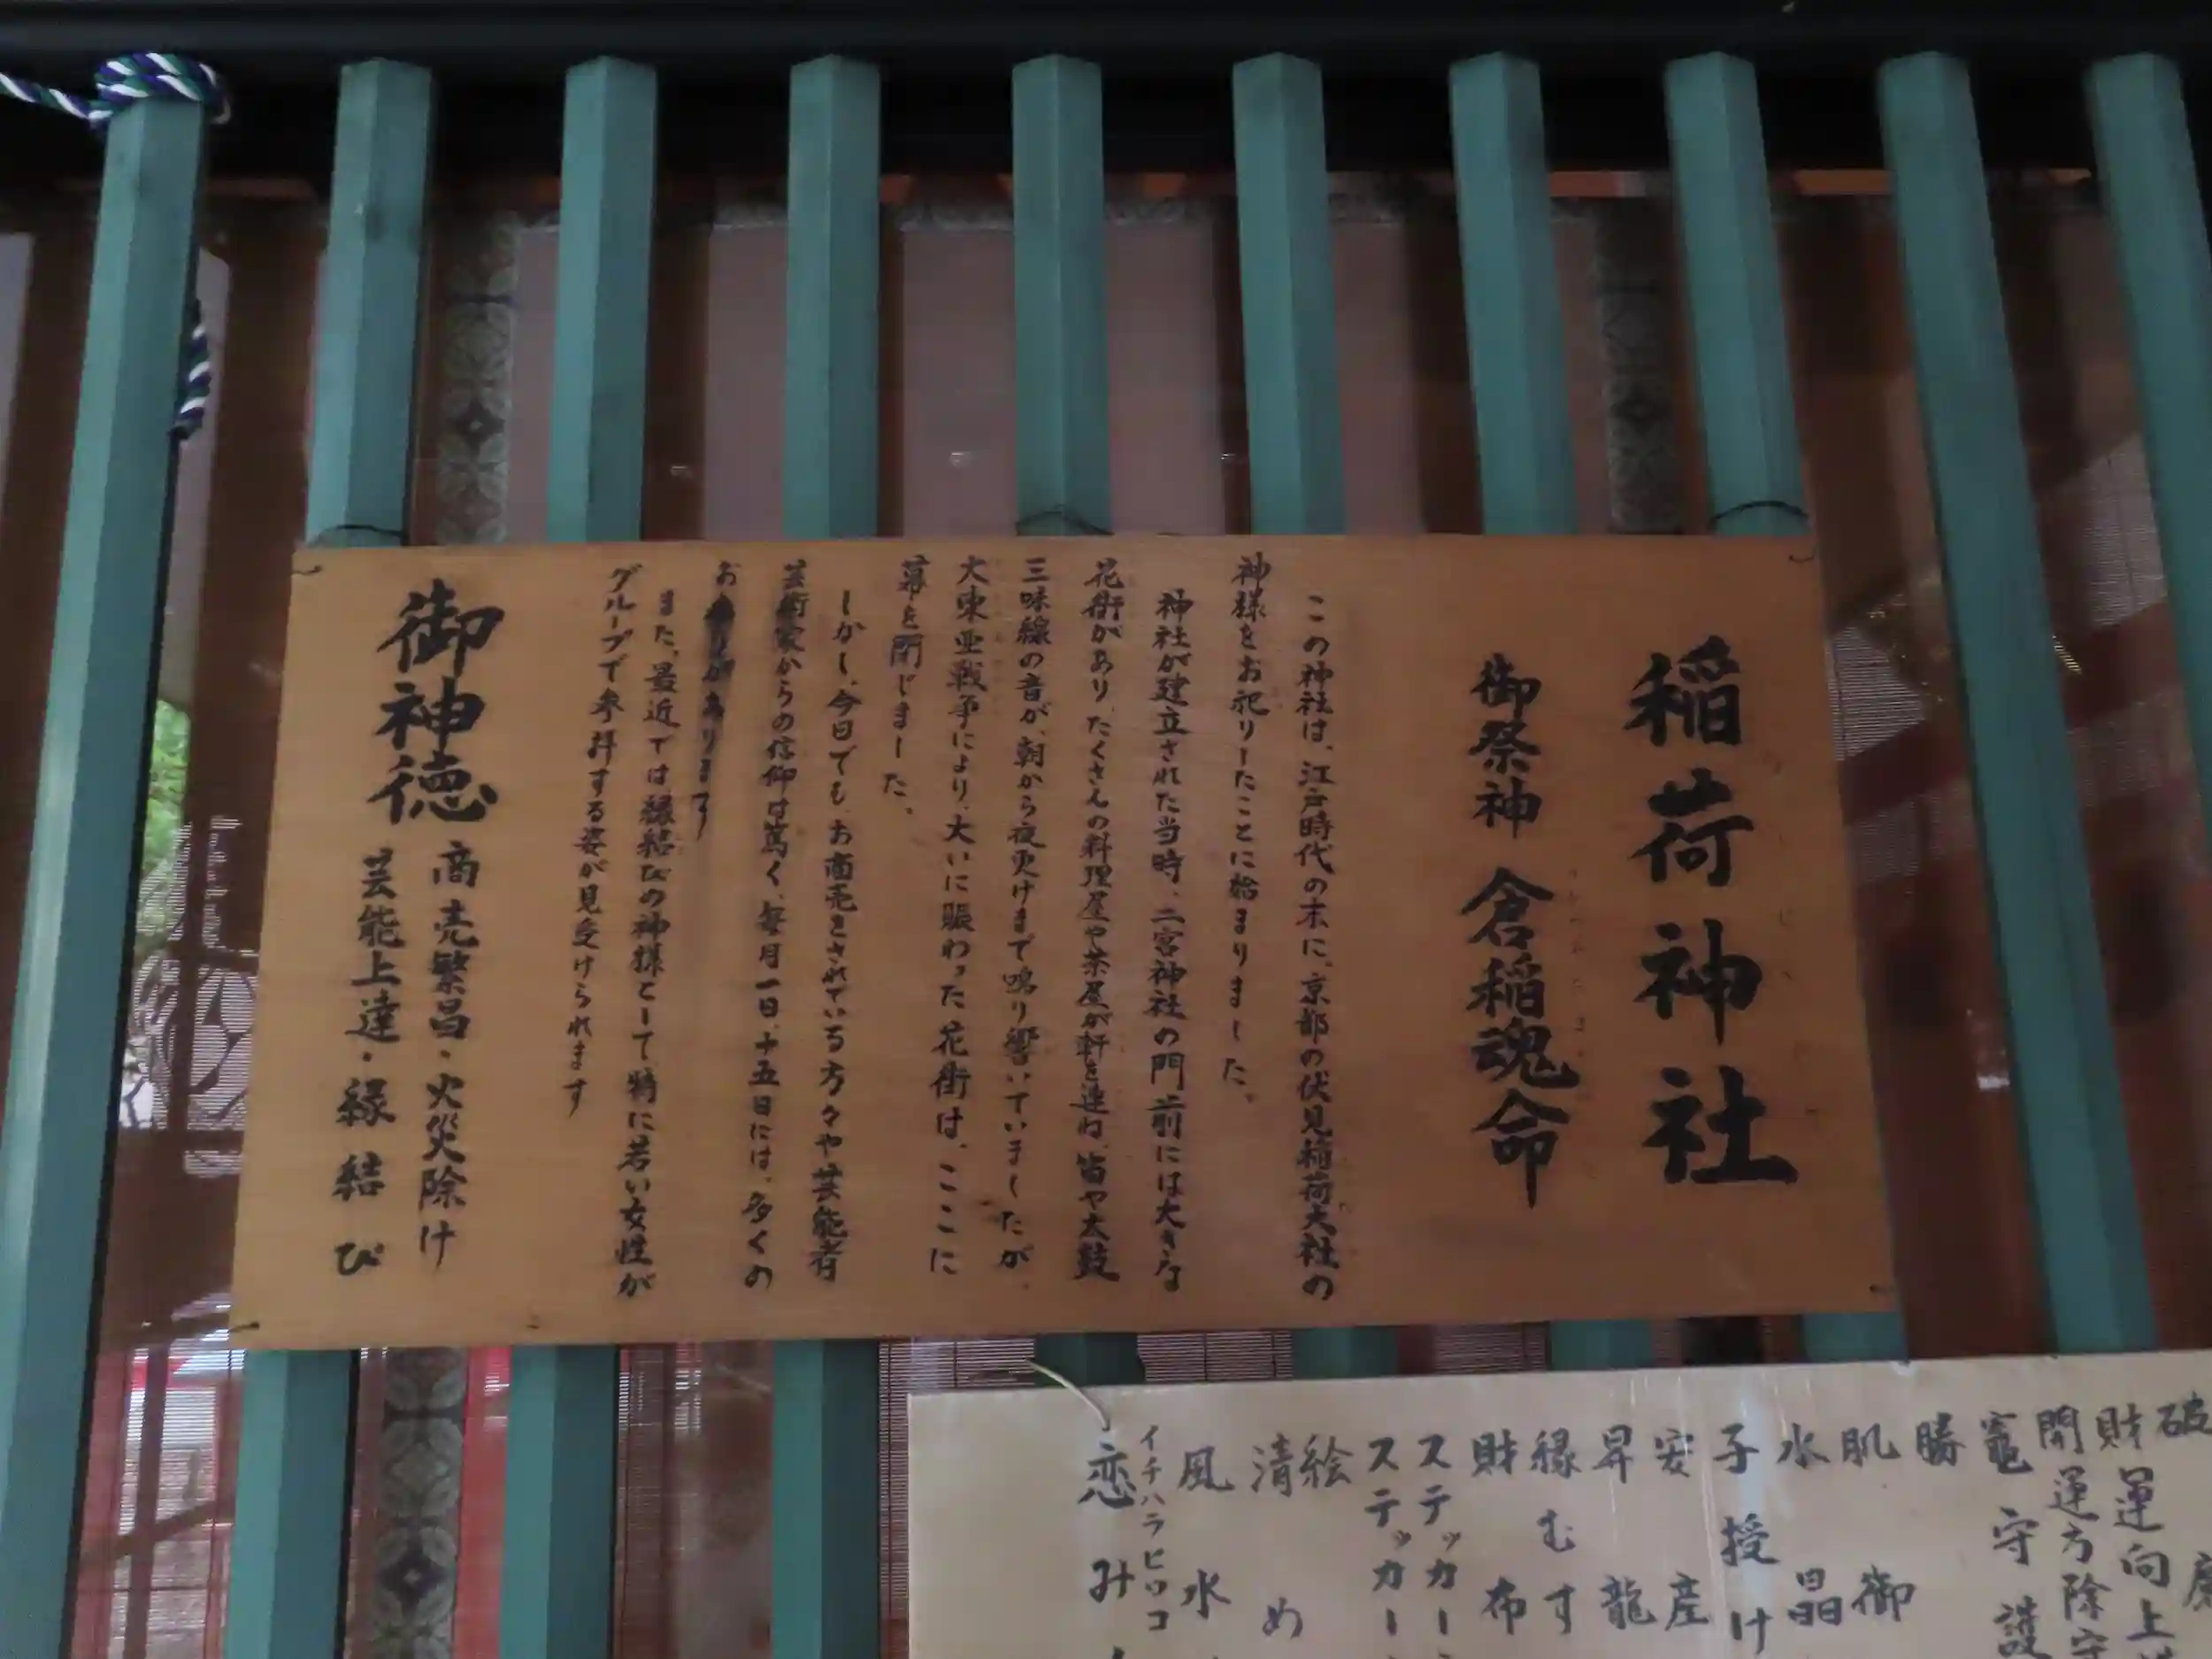 稲荷神社
御祭神 倉稲魂命
この神社は、江戸時代の末に、京都の伏見稲荷大社の
神様をお祀りしたことに始まりました。
神社が建立された当時、二宮神社の門前には大きな
花街があり、たくさんの料理屋や茶屋が軒を連ね、笛や太鼓
三味線の音が、朝から夜更けまで鳴り響いていましたが、
大東亜戦争により、大いに賑わった花街は、ここに
幕を閉じました。
しかし、今日でも、お商売をされている方々や芸能者
芸術家からの信仰は篤く、毎月一日、十五日には、多くの
お参りがあります
また、最近では縁結びの神様として、特に若い女性が
グループで参拝する姿が見受けられます
御神徳
商売繁昌・火災除け
芸能上達・縁結び
破
財運向上
開運方除守
竈守護
勝
肌御
水晶
子授け
安産
昇龍
縁むす
財布
ステッカー
ステッカー
絵
清め
風水
イチハラヒヨコ
恋み